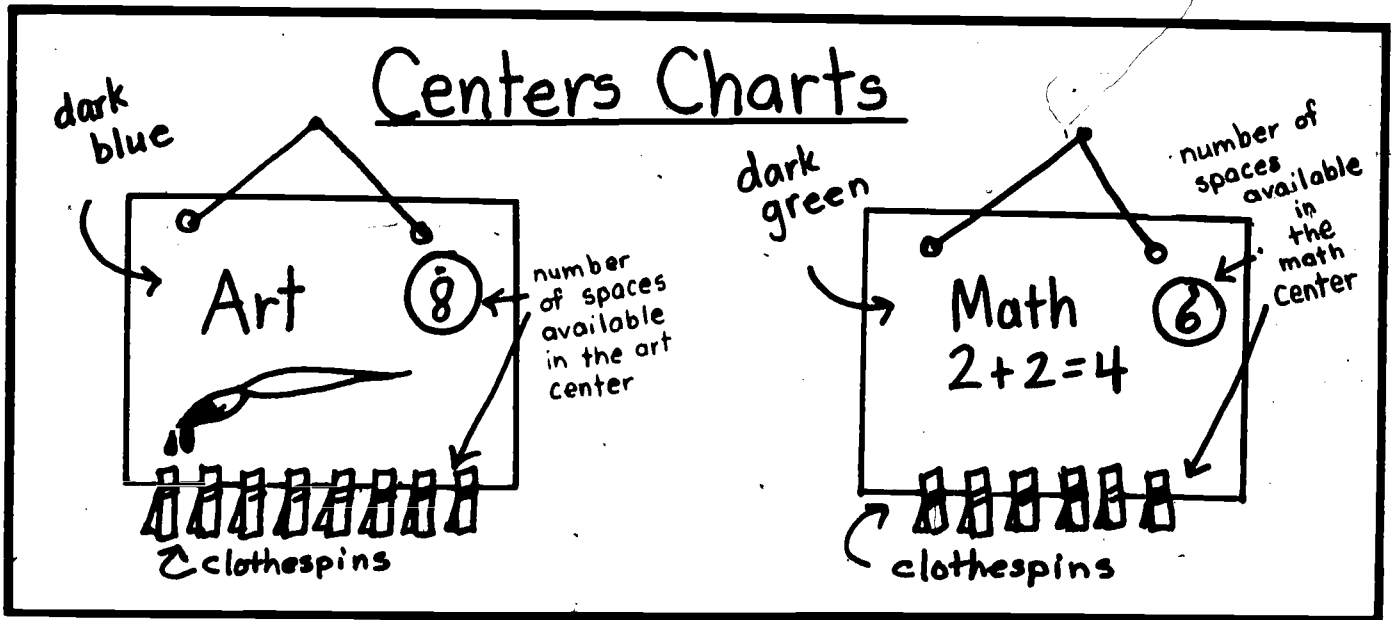 Centers Charts
dark
blue
Art
8
number
of spaces
available
in the art
center
clothespins
dark
green
Math
6
2+2=4
number of
spaces
available
in
the
math
center
clothespins